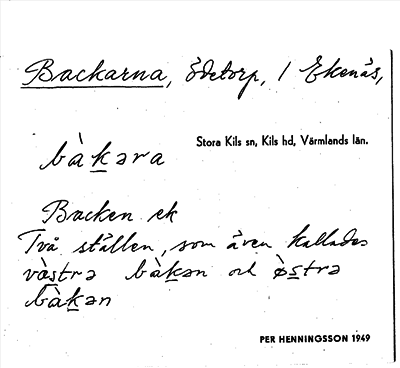 Backarna, ödetorp, / Ekenäs,
Stora Kils sn, Kils hd, Värmlands län.
bàḵəra
Backen ek
Två ställen, som även kallades
västrə bàḵən och ø̀s̱trə
bàḵən
PER HENNINGSSON 1949